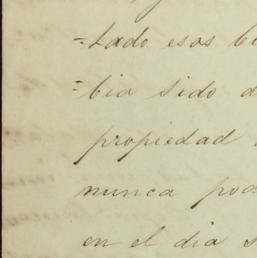 =tado esos bi
=bia sido d
propiedad
nunca pod
en el dia s